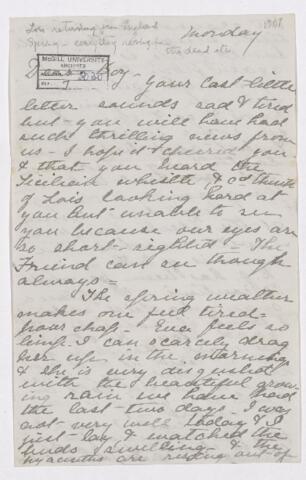 Lois returning from England 1908
Spring - everyday rising from
the dead etc.
Monday
McGILL UNIVERSITY
ARCHIVES
Dear Boy - your last little
letter sounds sad & tired
but - you will have had
such thrilling news from
us - I hope it cheered you
& that you heard the
whistle, & cd think
of Lois looking hard at
you but unable to see
you because our eyes are
so short-sighted - The
Friend can see though
always =
The spring weather
makes one feel tired -
poor chap - Eva feels so
limp I can scarcely drag
her up in the morning
& she is very disgusted
with the beautiful grow-
ing rain we have had
the last two days - I was
not very well today & I
just lay & watched the
buds swelling & the
hyacinths are rising out of